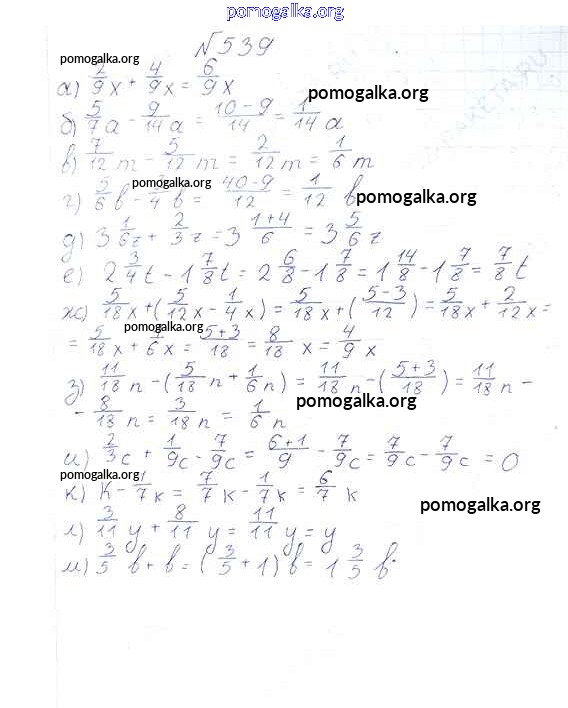 pomogalka.org
№539
pomogalka.org
а) 2/9x + 4/9x = 6/9x
pomogalka.org
б) 5/7a - 9/14a = (10-9)/14 = 1/14a
в) 7/12m - 5/12m = 2/12m = 1/6m
pomogalka.org
г) 5/6b - 3/4b = (40-9)/12 = 1/12 b
pomogalka.org
д) 3 1/6z + 2/3z = 3 (1+4)/6 = 3 5/6z
е) 2 3/4t - 1 7/8t = 2 6/8 - 1 7/8 = 1 14/8 - 1 7/8 = 7/8t
ж) 5/18x + (5/12x - 1/4x) = 5/18x + ((5-3)/12) = 5/18x + 2/12x =
pomogalka.org
= 5/18x + 1/6x = (5+3)/18 = 8/18 x = 4/9 x
з) 11/18n - (5/18n + 1/6n) = 11/18n - ((5+3)/18) = 11/18n -
pomogalka.org
- 8/18n = 3/18n = 1/6n
и) 2/3c + 1/9c - 7/9c = (6+1)/9 - 7/9c = 7/9c - 7/9c = 0
pomogalka.org
к) k - 1/7k = 7/7k - 1/7k = 6/7 k
pomogalka.org
л) 3/11y + 8/11y = 11/11y = y
м) 3/5 b + b = (3/5 + 1)b = 1 3/5 b.